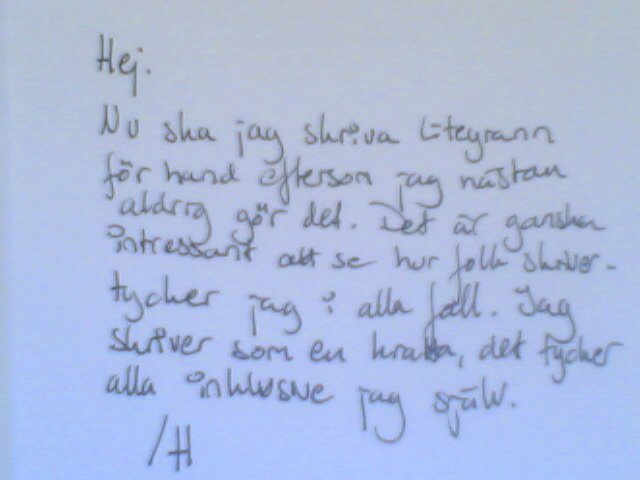 Hej.
Nu ska jag skriva litegrann
för hand eftersom jag nästan
aldrig gör det. Det är ganska
intressant att se hur folk skriver -
tycker jag i alla fall. Jag
skriver som en kratta, det tycker
alla inklusive jag själv.
/H